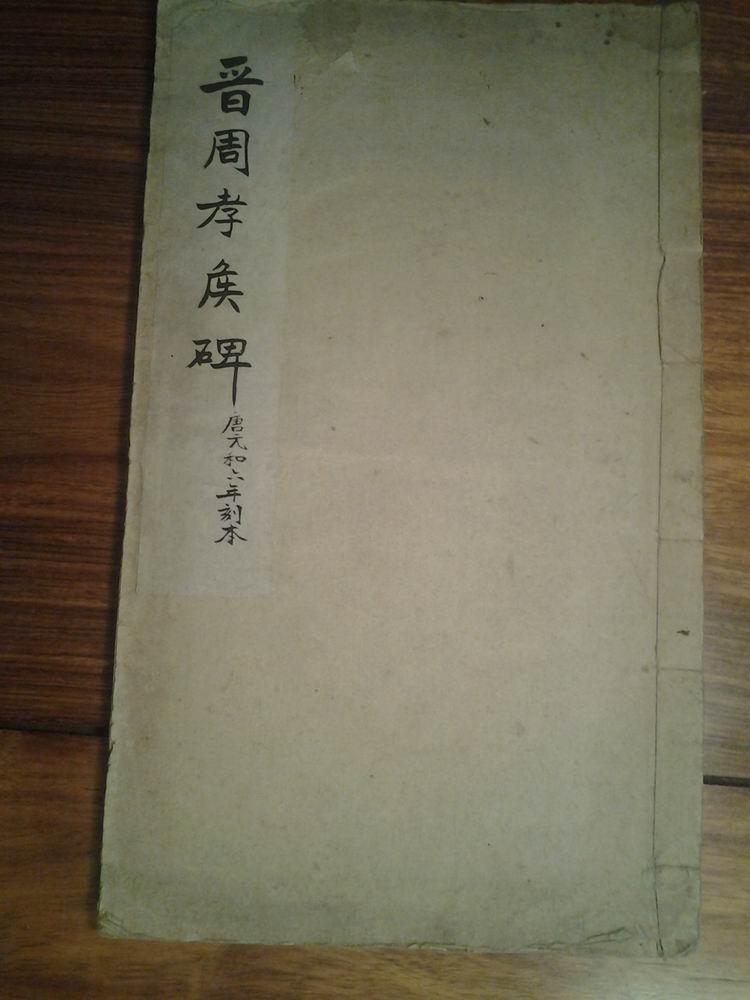 晋周孝侯碑
唐元和六年刻本